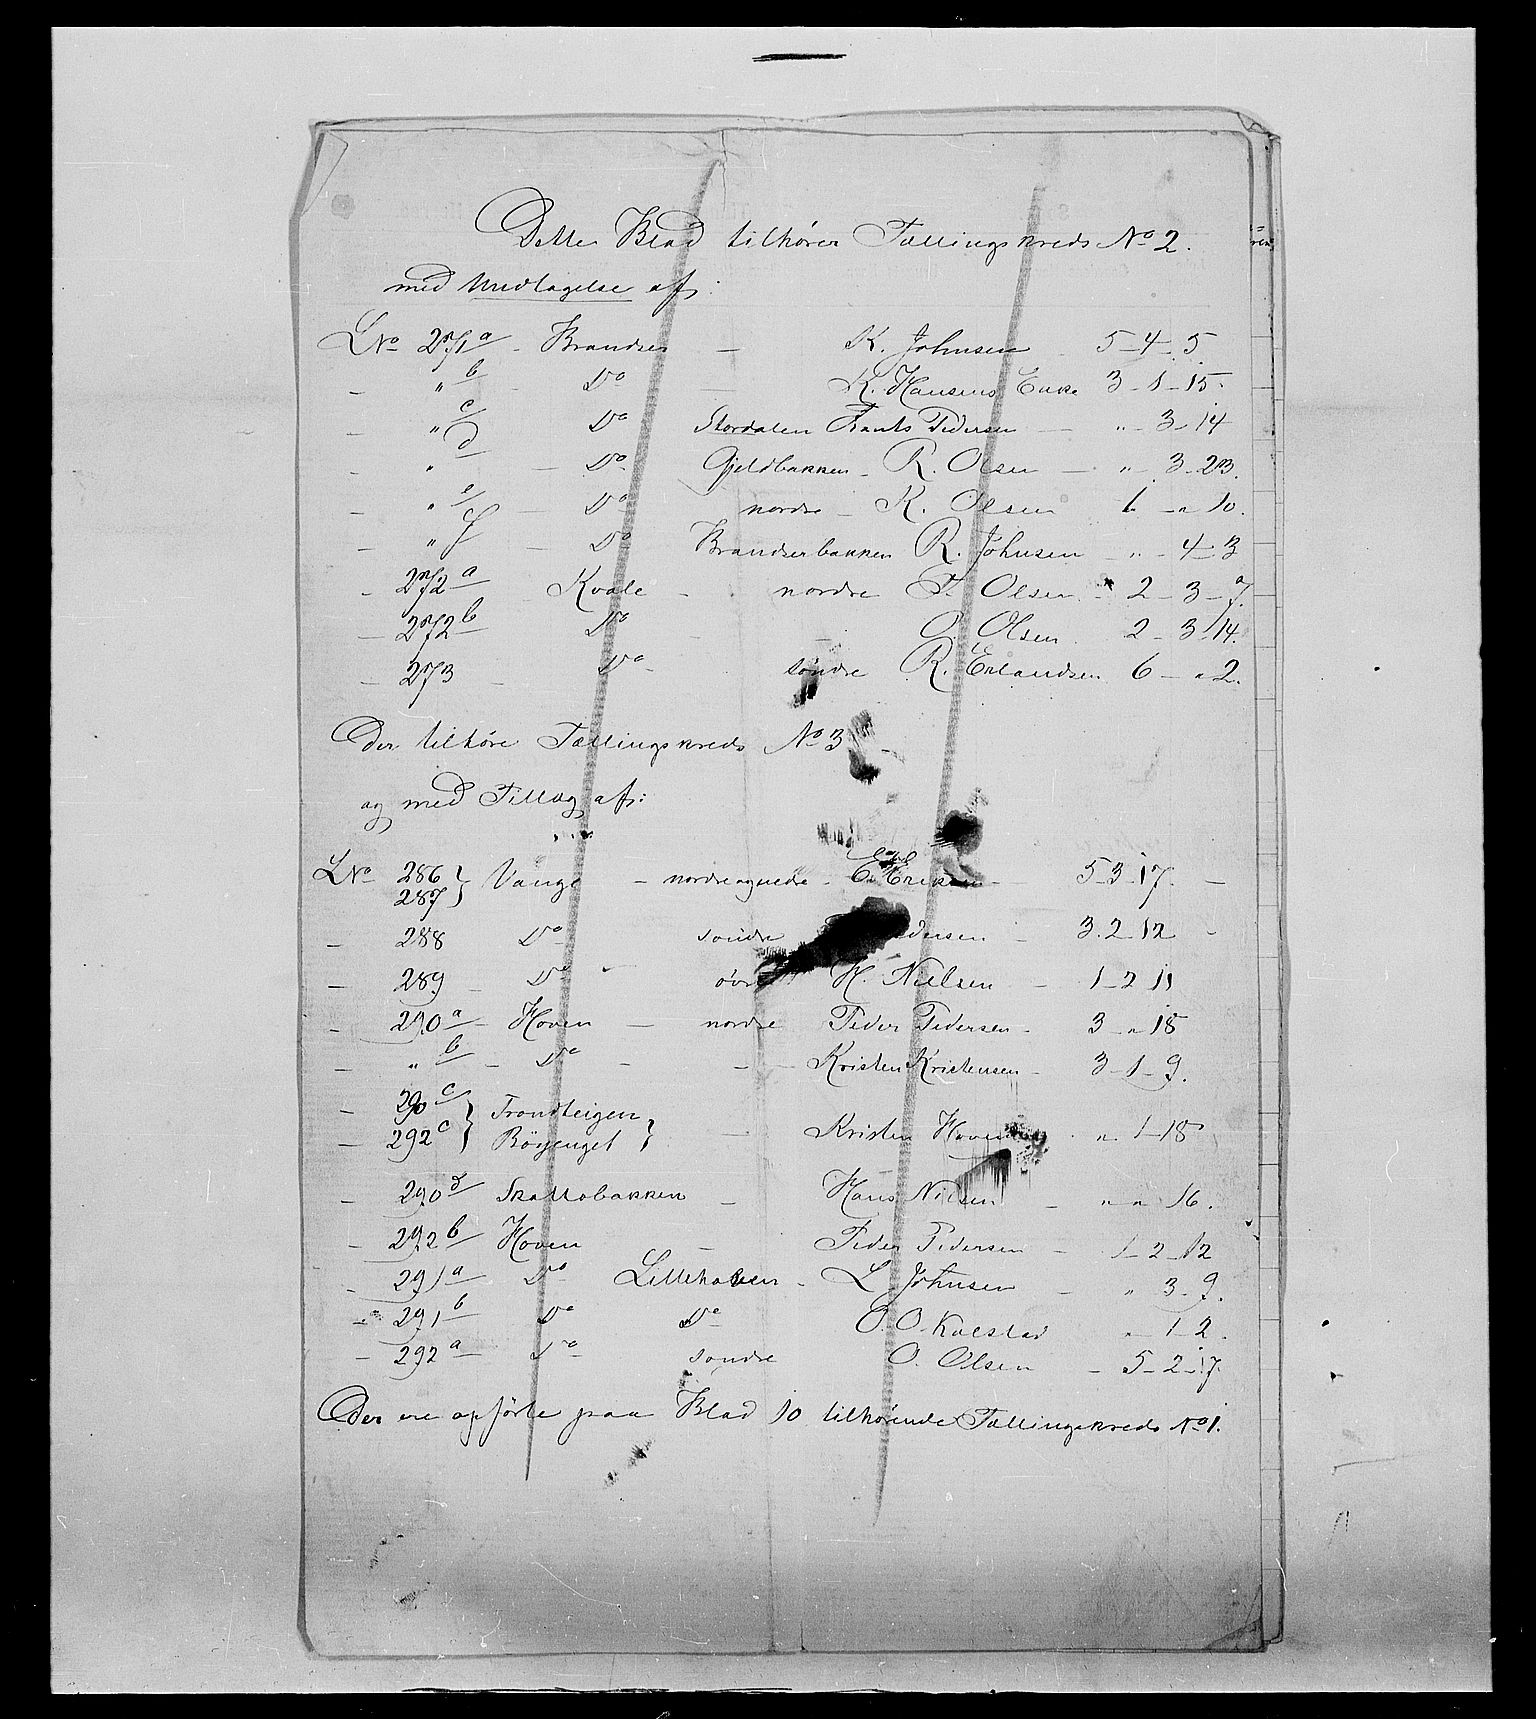 Dette Blad tilhører Tællingskreds No 2.
med Undtagelse af:
LNo 271a - Brandser - K. Johnsen 5-4-5
- " b - Do - K. Hansens Enke 3-1-15
- " c Do Stordalen Hants Pedersen - " 3-14
- " d - Do Gjeldbakken - R. Olsen - " 3-23.
- " e - Do nordre - K. Olsen 1 - " 10.
- " f - Do Brandserbakken R. Johnsen - " - 4-3
- 272a - Kvale - nordre T. Olsen 2-3-7.
- 272b - Do - O. Olsen 2-3-14.
- 273 - Do søndre R. Erlandsen 6 - " 2.
Der tilhøre Tællingskreds No 3
og med Tillæg af:
LNo 286 } Vange - nordre og nedre - E. Eriksen - 5-3-17. -
287 }
- 288 Do søndre 3.2-12 -
- 289 - Do øvre H. Nielsen - 1-2-11
- 290a - Hoven - nordre Peder Pedersen - 3 - " 18
- " b - Do - - Kristen Kristensen - 3-1-9.
- 290c } Trondteigen }
- 292c } Böyenget } - Kristen Hoven " 1-18
- 290d Skattebakken - Hans Nilsen - " " 16.
- 292b Hoven - Peder Pedersen - 1-2-12
- 291a Do Lillehoven - L. Johnsen - " 3-9.
- 291b Do Do O. O. Kolstad " 1-2.
- 292a - Do søndre O. Olsen - 5-2-17.
Der ere opførte paa Blad 10 tilhørende Tællingskreds No 1.